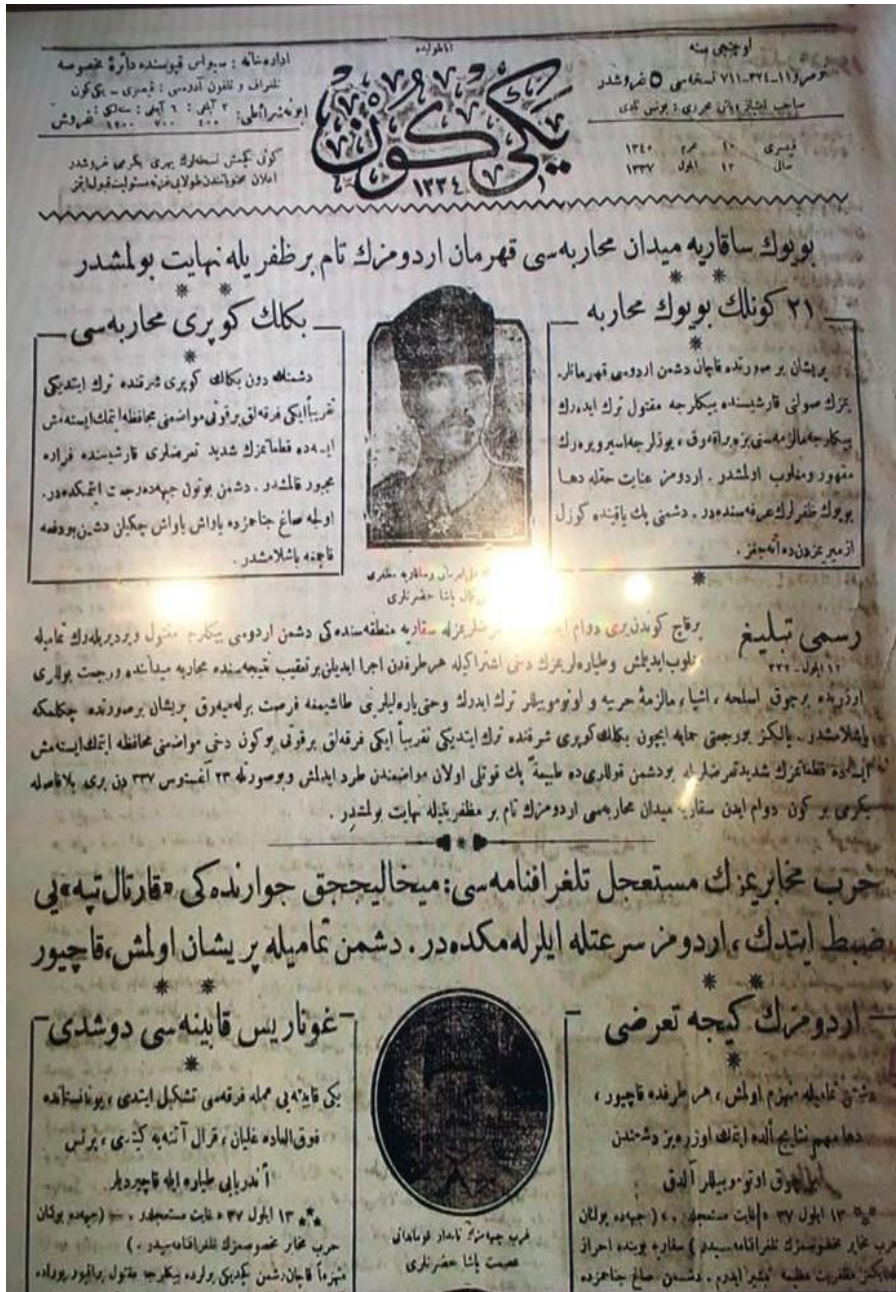 اوچنجی سنه
نومرو ١١-٣٢٤-٧١١ نسخه‌سی ٥ غروشدر
صاحب امتیاز و باش محرری : یونس نادی
قیصری ١٠ محرم ١٣٤٠
صالی ١٣ ایلول ١٣٣٧
آناطولیده
یکی کون
١٣٣٤
اداره‌خانه : سیواس قپوسنده دائرهٔ مخصوصه
تلغراف و تلفون آدرسی : قیصری - یکی کون
ابونه شرائطی : ٣ آیلغی : ٤٠٠ ٦ آیلغی : ٧٠٠ سنه‌لکی : ١٣٠٠ غروش
کونی کچمش نسخه‌لرك بهری یکرمی غروشدر
اعلان محتویاتندن طولایی غزته مسئولیت قبول ایتمز
بویوك ساقاریه میدان محاربه‌سی قهرمان اردومزك تام بر ظفریله نهایت بولمشدر
٢١ کونلك بویوك محاربه
پریشان بر صورتده قاچان دشمن اردوسی قهرمانلر
یمزك صولتی قارشیسنده بیکلرجه مقتول ترك ایده‌رك
بیکلرجه مالزمه‌سنی بزه براقه‌رق ، یوزلرجه اسیر ویره‌رك
مقهور و مغلوب اولمشدر . اردومز عنایت حقله دها
بویوك ظفرلرك عرفه‌سنده‌در . دشمنی پك یاقینده کوزل
ازمیریمزدن ده آته‌جغز .
بکلك کوپری محاربه‌سی
دشمنك دون بکلك کوپری شرقنده ترك ایتدیکی
تقریباً ایکی فرقه‌لق بر قوتی مواضعنی محافظه ایتمك ایسته‌مش
ایسه‌ده قطعاتمزك شدید تعرضلری قارشیسنده فراره
مجبور قالمشدر . دشمن بوتون جبهه‌ده رجعت ایتمکده‌در .
اولجه صاغ جناحمزده یاواش یاواش چکیلن دشمن بو دفعه
قاچمغه باشلامشدر .
کمال پاشا حضرتلری
رسمی تبلیغ
١٢ ایلول ٣٣٧
بر قاچ کوندن بری دوام ایدن تعرضلریمزله سقاریه منطقه‌سنده‌کی دشمن اردوسی بیکلرجه مقتول ویردیریله‌رك تمامیله
مغلوب ایدیلمش و طیاره‌لریمزك دخی اشتراکیله هر طرفدن اجرا ایدیلن بر تعقیب نتیجه‌سنده محاربه میداننده و رجعت یوللری
اوزرنده بر چوق اسلحه ، اشیا ، مالزمهٔ حربیه و اوتوموبیللر ترك ایدرك و حتی یاره‌لیلرینی طاشیمغه فرصت بوله‌میه‌رق پریشان بر صورتده چکلمکه
باشلامشدر . یالکز بو رجعتی حمایه ایچون بکلك کوپری شرقنده ترك ایتدیکی تقریباً ایکی فرقه‌لق بر قوتی بو کون دخی مواضعنی محافظه ایتمك ایسته‌مش
ایسه‌ده قطعاتمزك شدید تعرضلریله بو دشمن قوللری ده طبیعة پك قوتلی اولان مواضعندن طرد ایدلمش و بو صورتله ٢٣ آغستوس ٣٣٧ دن بری بلافاصله
یکرمی بر کون دوام ایدن سقاریه میدان محاربه‌سی اردومزك تام بر مظفریتیله نهایت بولمشدر .
حرب مخابریمزك مستعجل تلغرافنامه‌سی : میخالیججق جوارنده‌کی «قارتال تپه»یی
ضبط ایتدك ، اردومز سرعتله ایلرله‌مکده‌در . دشمن تمامیله پریشان اولمش ، قاچیور
اردومزك کیجه تعرضی
دشمن تمامیله منهزم اولمش ، هر طرفده قاچیور ،
دها مهم نتایج الده ایتمك اوزره‌یز دشمندن
بر چوق اوتوموبیللر آلدق
١٣ ایلول ٣٧ « غایت مستعجلدر . » ( جبهه‌ده بولنان
حرب مخابر مخصوصمزك تلغرافنامه‌سیدر ) سقاریه بوینده احراز
ایتدیکمز مظفریت عظیمه‌یی تبشیر ایدرم . دشمن صاغ جناحمزده
غرب جبهه‌مزك نامدار قوماندانی
عصمت پاشا حضرتلری
غوناریس قابینه‌سی دوشدی
یکی قابینه‌یی عمله فرقه‌سی تشکیل ایتدی ، یونانستانده
فوق العاده غلیان ، قرال آتنه‌یه کیتدی ، پرنس
آندریایی طیاره ایله قاچیردیلر
١٣ ایلول ٣٧ « غایت مستعجلدر . » ( جبهه‌ده بولنان
حرب مخابر مخصوصمزك تلغرافنامه‌سیدر . )
منهزماً قاچان دشمن کچدیکی یرلرده بیکلرجه مقتول براقیور بوراده